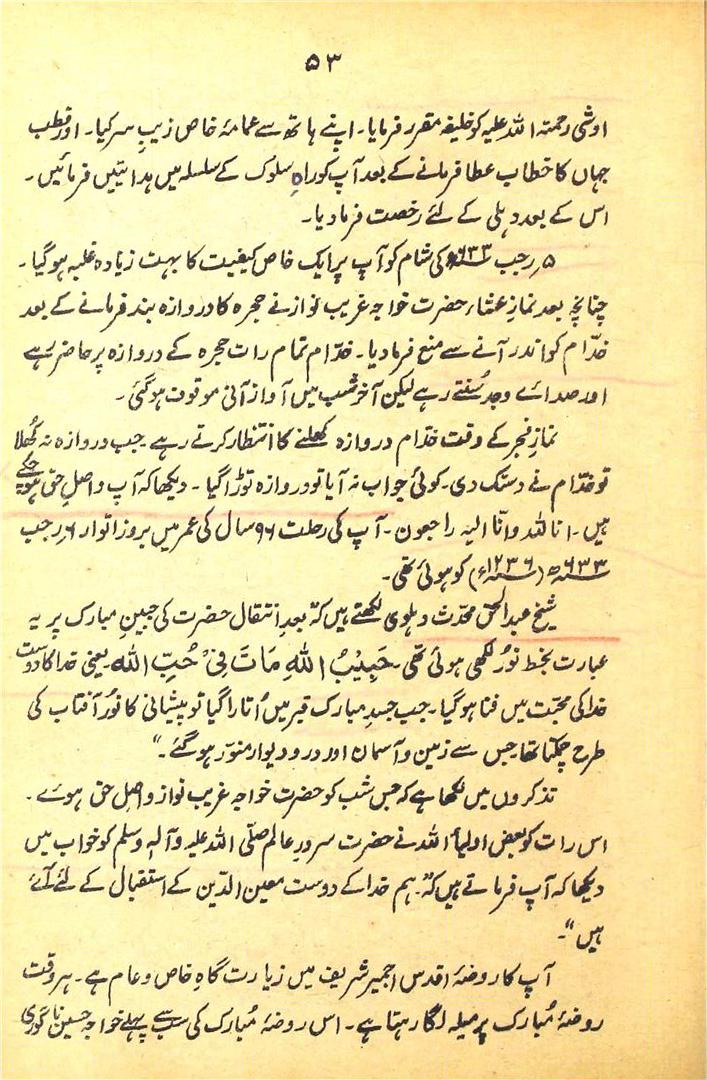 ۵۳
اوشی رحمتہ اللہ علیہ کو خلیفہ مقرر فرمایا۔ اپنے ہاتھ سے عمامۂ خاص زیبِ سر کیا۔ اور قطب
جہاں کا خطاب عطا فرمانے کے بعد آپ کو راہِ سلوک کے سلسلہ میں ہدایتیں فرمائیں۔
اس کے بعد دہلی کے لئے رخصت فرما دیا۔
۵؍ رجب ۶۳۳ھ کی شام کو آپ پر ایک خاص کیفیت کا بہت زیادہ غلبہ ہو گیا۔
چنانچہ بعد نمازِ عشاء حضرت خواجہ غریب نواز نے حجرہ کا دروازہ بند فرمانے کے بعد
خدّام کو اندر آنے سے منع فرما دیا۔ خدّام تمام رات حجرہ کے دروازہ پر حاضر رہے
اور صدائے وجد سُنتے رہے لیکن آخر شب میں آواز آنی موقوف ہو گئی۔
نمازِ فجر کے وقت خدّام دروازہ کھلنے کا انتظار کرتے رہے جب دروازہ نہ کُھلا
تو خدّام نے دستک دی۔ کوئی جواب نہ آیا تو دروازہ توڑا گیا۔ دیکھا کہ آپ واصلِ حق ہو چکے
ہیں۔ انا للہ وانّا الیہ راجعون۔ آپ کی رحلت ۹۶ سال کی عمر میں بروز اتوار ۶؍ رجب
۶۳۳ھ (۱۲۳۶ء) کو ہوئی تھی۔
شیخ عبدالحق محدّث دہلوی لکھتے ہیں کہ "بعدِ انتقال حضرت کی جبینِ مبارک پر یہ
عبارت بخطِ نُور لکھی ہوئی تھی۔ حَبِیْبُ اللہِ مَاتَ فِیْ حُبِّ اللہ۔ یعنی خدا کا دوست
خدا کی محبّت میں فنا ہو گیا۔ جب جسدِ مبارک قبر میں اُتارا گیا تو پیشانی کا نُور آفتاب کی
طرح چمکتا تھا جس سے زمین و آسمان اور در و دیوار منوّر ہو گئے۔"
تذکروں میں لکھا ہے کہ جس شب کو حضرت خواجہ غریب نواز واصلِ حق ہوئے۔
اس رات کو بعض اولیأ اللہ نے حضرت سرورِ عالم صلّی اللہ علیہ وآلہٖ وسلم کو خواب میں
دیکھا کہ آپ فرماتے ہیں کہ "ہم خدا کے دوست معین الدّین کے استقبال کے لئے آئے
ہیں"۔
آپ کا روضۂ اقدس اجمیر شریف میں زیارت گاہِ خاص و عام ہے۔ ہر وقت
روضۂ مُبارک پر میلہ لگا رہتا ہے۔ اس روضۂ مُبارک کی سب سے پہلے خواجہ حسین ناگوری